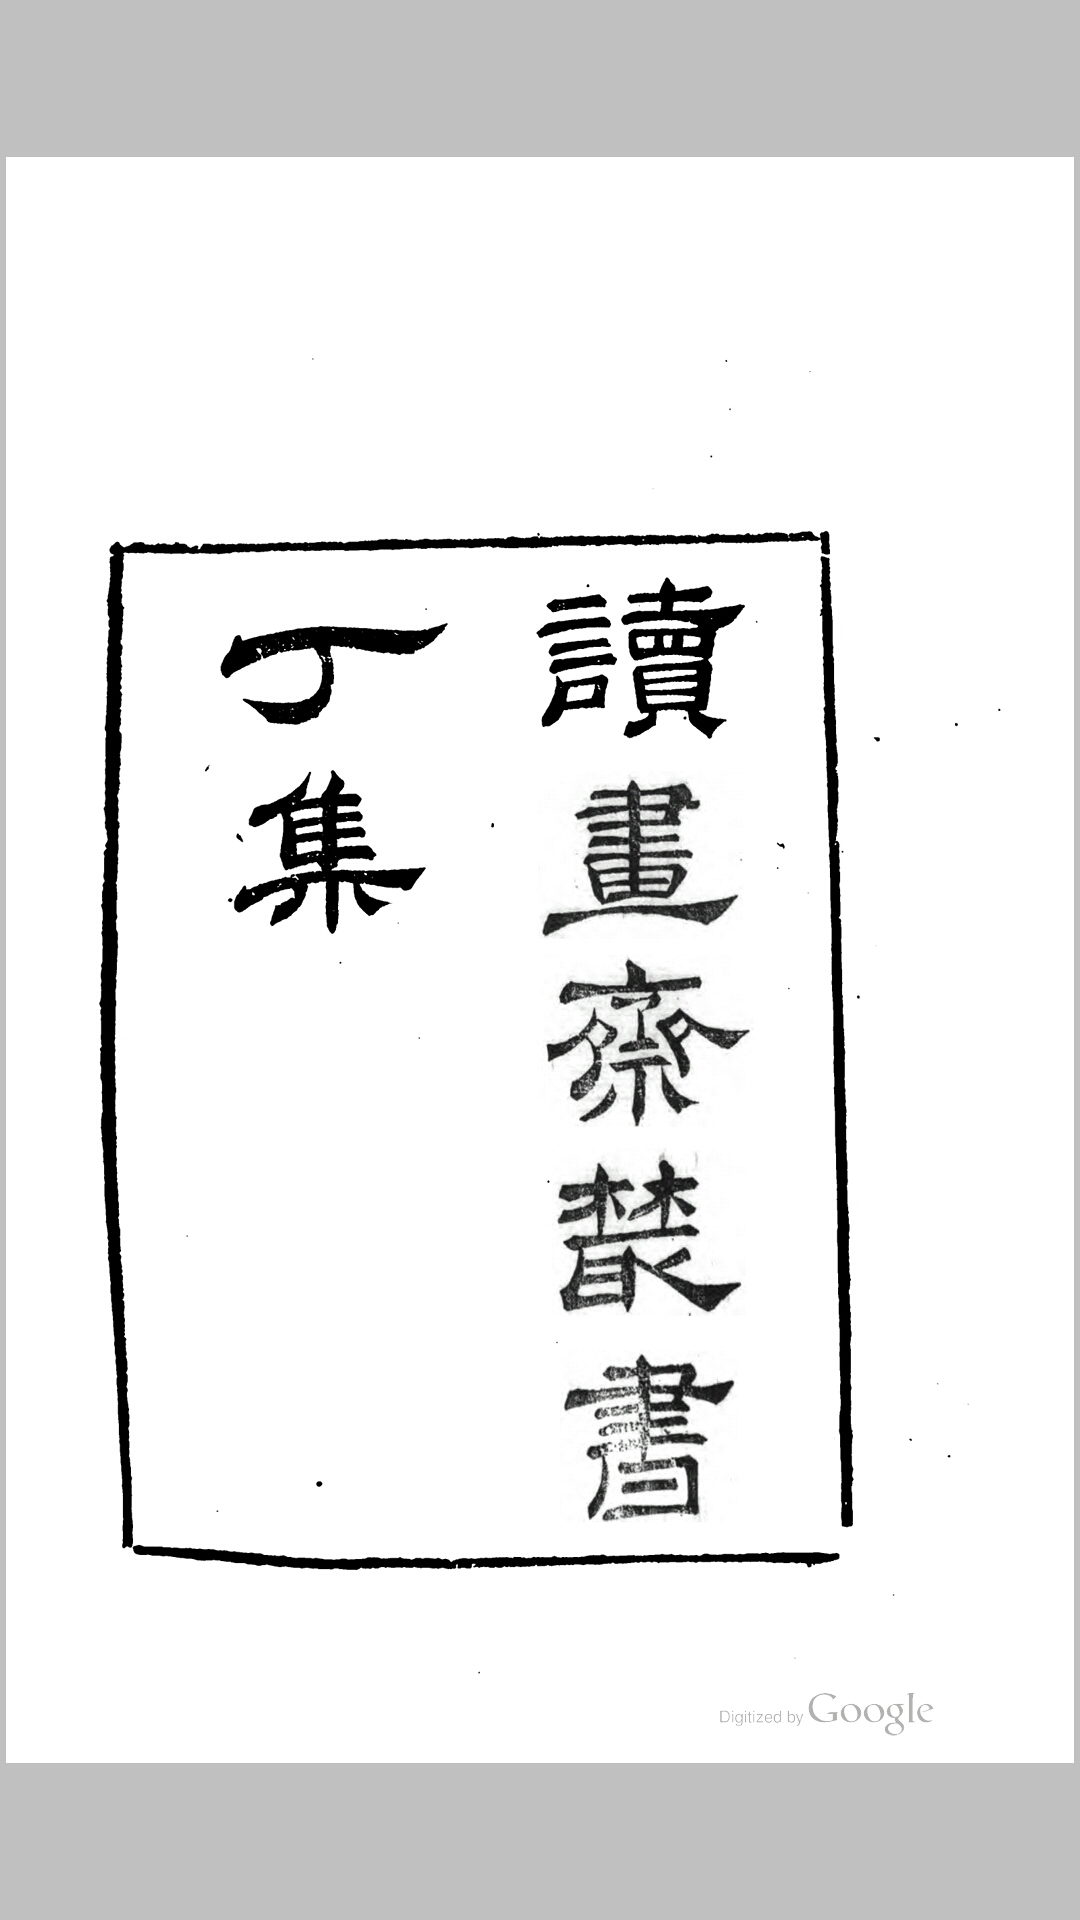 讀畫齋叢書
丁集
Digitized by Google